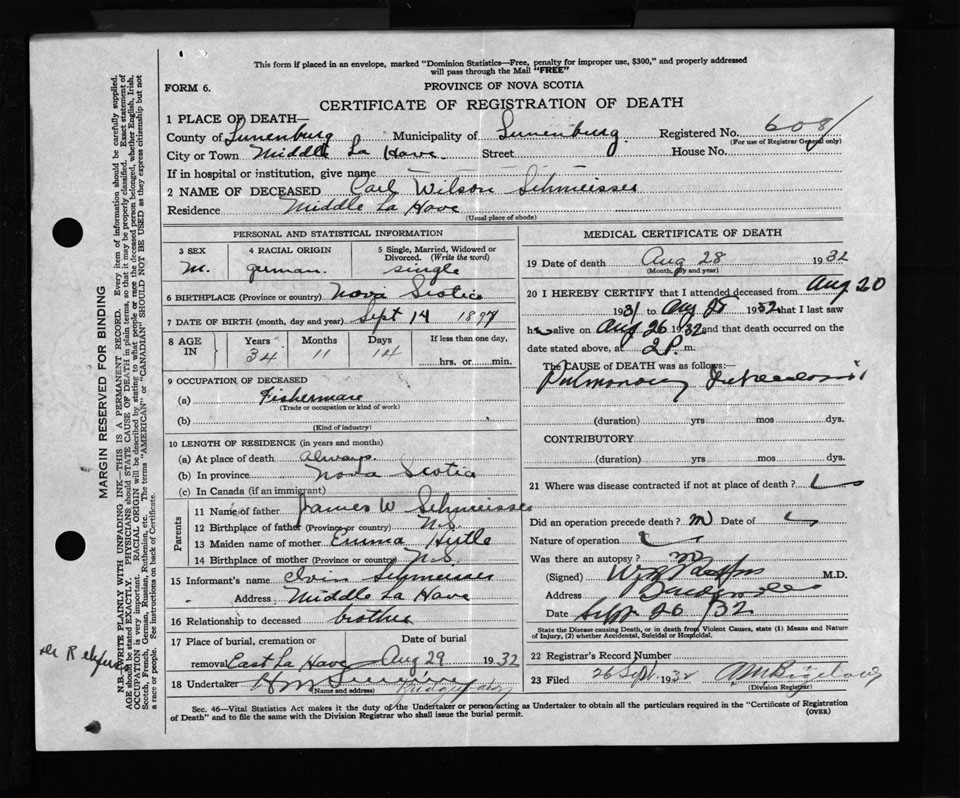 This form if placed in an envelope, marked "Dominion Statistics—Free, penalty for improper use, $300," and properly addressed
will pass through the Mail "FREE"
FORM 6.
PROVINCE OF NOVA SCOTIA
CERTIFICATE OF REGISTRATION OF DEATH
1 PLACE OF DEATH—
County of Lunenburg Municipality of Lunenburg Registered No. 608
(For use of Registrar General only)
City or Town Middle La Have Street House No.
If in hospital or institution, give name
2 NAME OF DECEASED Carl Wilson Schmeisser
Residence Middle La Have
(Usual place of abode)
PERSONAL AND STATISTICAL INFORMATION
3 SEX 4 RACIAL ORIGIN 5 Single, Married, Widowed or
Divorced. (Write the word)
M. german. single
6 BIRTHPLACE (Province or country) Nova Scotia
7 DATE OF BIRTH (month, day and year) Sept 14 1897
8 AGE IN Years Months Days If less than one day,
34 11 14 hrs. or min.
9 OCCUPATION OF DECEASED
(a) Fisherman
(Trade or occupation or kind of work)
(b)
(Kind of industry)
10 LENGTH OF RESIDENCE (in years and months)
(a) At place of death always
(b) In province Nova Scotia
(c) In Canada (if an immigrant)
Parents
11 Name of father James W Schmeisser
12 Birthplace of father (Province or country) N.S.
13 Maiden name of mother Emma Hirtle
14 Birthplace of mother (Province or country) N.S.
15 Informant's name Schmeisser
Address Middle La Have
16 Relationship to deceased brother
17 Place of burial, cremation or Date of burial
removal East La Have Aug 29 1932
18 Undertaker
(Name and address)
MEDICAL CERTIFICATE OF DEATH
19 Date of death Aug 28 1932
(Month, day and year)
20 I HEREBY CERTIFY that I attended deceased from Aug 20
1931 to Aug 1932 that I last saw
h alive on Aug 26 1932 and that death occurred on
date stated above, at 2 P. m.
The CAUSE of DEATH was as follows:
Pulmonary Tuberculosis
(duration) yrs mos dys.
CONTRIBUTORY
(duration) yrs mos dys.
21 Where was disease contracted if not at place of death?
Did an operation precede death? Date of
Nature of operation
Was there an autopsy?
(Signed) M.D.
Address
Date Sept 26 /32
State the Disease causing Death, or in death from Violent Causes, state (1) Means and Nature
of Injury, (2) whether Accidental, Suicidal or Homicidal.
22 Registrar's Record Number
23 Filed 26 Sept 1932
(Division Registrar)
Sec. 46—Vital Statistics Act makes it the duty of the Undertaker or person acting as Undertaker to obtain all the particulars required in the "Certificate of Registration
of Death" and to file the same with the Division Registrar who shall issue the burial permit.
(OVER)
MARGIN RESERVED FOR BINDING
N.B.—WRITE PLAINLY WITH UNFADING INK—THIS IS A PERMANENT RECORD. Every item of information should be carefully supplied.
AGE should be stated EXACTLY. PHYSICIANS should STATE CAUSE OF DEATH in plain terms, so that it may be properly classified. Exact statement of
OCCUPATION is very important. RACIAL ORIGIN will be described by stating to what people or race the deceased person belonged, whether English, Irish,
Scotch, French, German, Russian, Ruthenian, etc. The terms "AMERICAN" or "CANADIAN" SHOULD NOT BE USED as they express citizenship but not
a race or people. See instructions on back of Certificate.